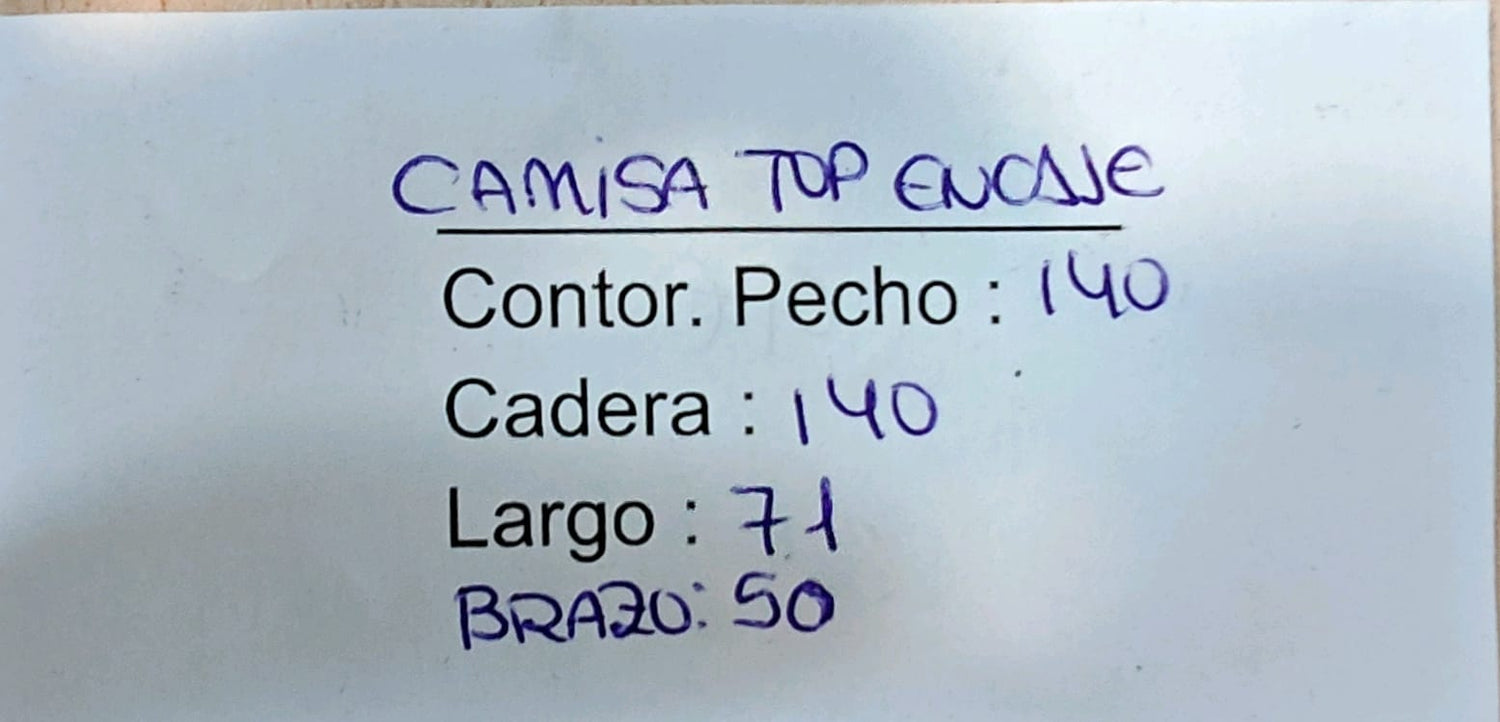 CAMISA TOP ENCAJE
Contor. Pecho : 140
Cadera : 140
Largo : 71
BRAZO: 50